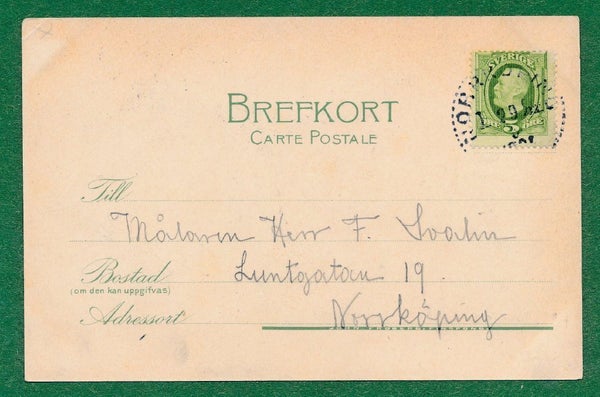 SVERIGE
BREFKORT
CARTE POSTALE
Till
Målaren Herr F. Svalin
Bostad
(om den kan uppgifvas)
Luntgatan 19.
Adressort
Norrköping